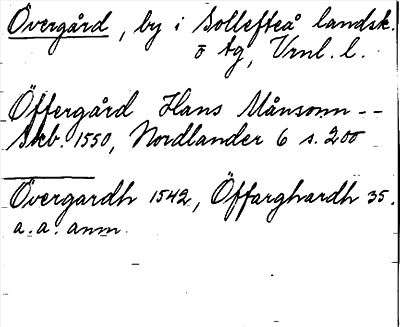 Övergård, by i Sollefteå landsk.
o tg, Vrnl. l.
Öffergård Hans Månsonn --
Skb. 1550, Nordlander 6 s. 200
Övergardh 1542, Öffarghardh 35.
a. a. anm.